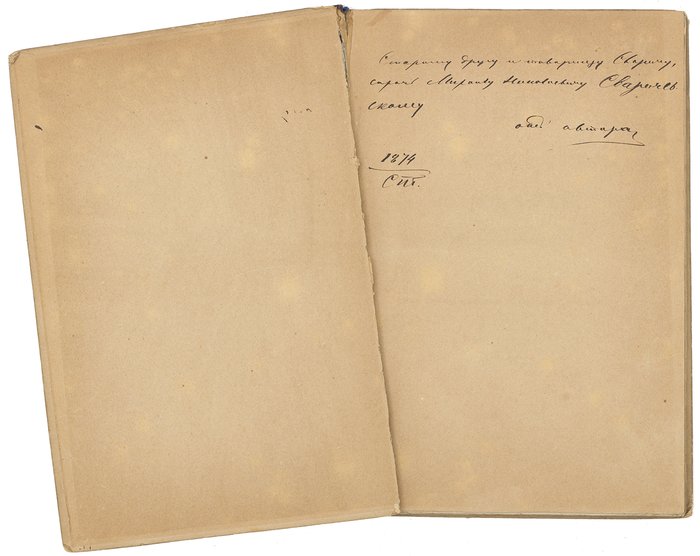 Старому другу и товарищу Сваричу,
Николаевичу Сваричев
скому
отъ автора,
1874
СПб.